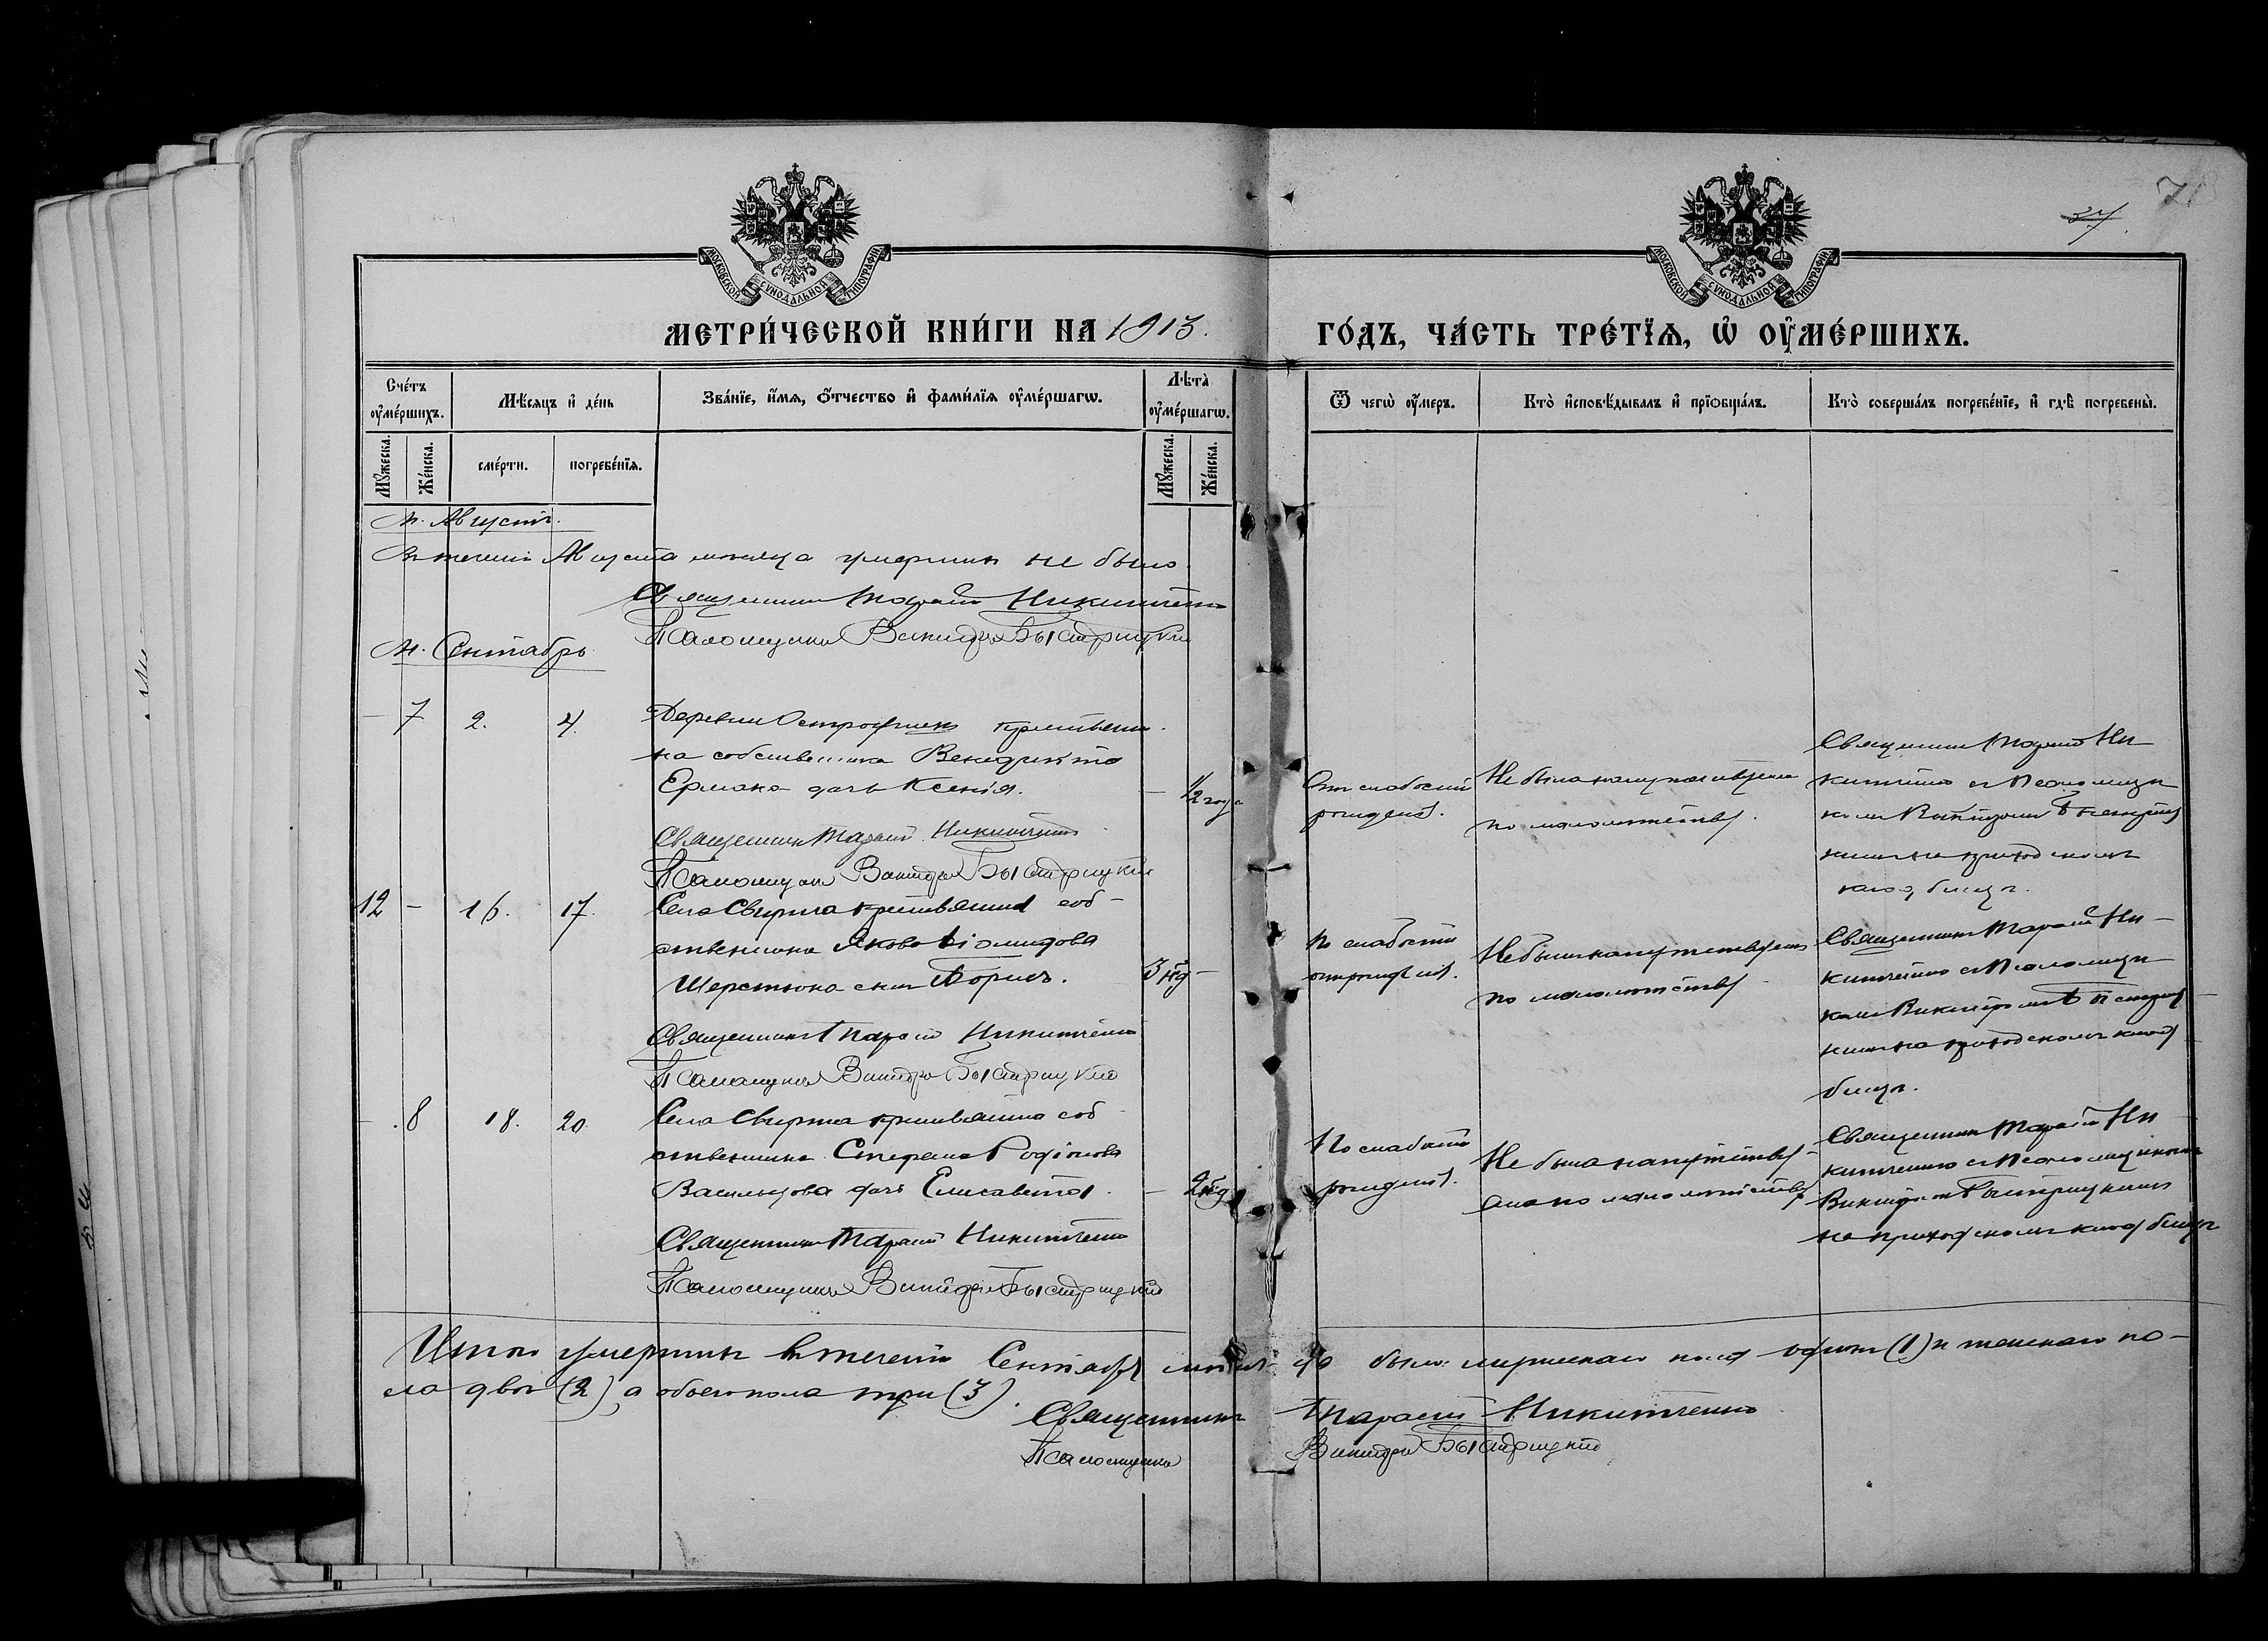 71
37
МОСКОВСКОЙ СУНОДАЛЬНОЙ ТИПОГРАФІИ
МОСКОВСКОЙ СУНОДАЛЬНОЙ ТИПОГРАФІИ
МЕТРИ́ЧЕСКОЙ КНИ́ГИ НА 1913.
ГО́ДЪ, ЧА́СТЬ ТРЕ́ТІѦ, Ѡ҆ ОУ҆МЕ́РШИХЪ.
Сче́тъ оу҆ме́ршихъ.
Мѣ́сяцъ и҆ де́нь
Зва́нїе, и҆́мѧ, ѻ҆́тчество и҆ фами́лїѧ оу҆ме́ршагѡ.
Лѣта̀ оу҆ме́ршагѡ.
Ѿ чегѡ̀ оу҆́меръ.
Кто̀ и҆сповѣ́дывалъ и҆ прїѡбща́лъ.
Кто̀ соверша́лъ погребе́нїе, и҆ гдѣ̀ погребены̀.
Мꙋ́жеска.
Же́нска.
сме́рти.
погребе́нїѧ.
Мꙋ́жеска.
Же́нска.
М. Августъ.
Въ теченіи Августа мѣсяца умершихъ не было
Священникъ Тарасій Никитченко
Псаломщикъ Викторъ Быстрицкій
М. Сентябрь
— 7 2. 4.
Деревни крестьяни-
на собственника Венедикта
Ермака дочь Ксенія.
— 1/2 года
Отъ слабости
рожденія.
Не была напутствована
по малолѣтству.
Священникъ Тарасій Ни-
китченко съ Псаломщи-
комъ Викторомъ Быстриц-
кимъ на приходскомъ
кладбищѣ.
Священникъ Тарасій Никитченко
Псаломщикъ Викторъ Быстрицкій
12 — 16. 17.
Села Свирша крестьянина соб-
ственника Якова Діомидова
Шерстюка сынъ Борисъ.
3 нед —
По слабости
отъ рожденія.
Не былъ напутствованъ
по малолѣтству
Священникъ Тарасій Ни-
китченко съ Псаломщи-
комъ Викторомъ Быстриц-
кимъ на приходскомъ клад-
бищѣ.
Священникъ Тарасій Никитченко
Псаломщикъ Викторъ Быстрицкій
— 8 18. 20.
Села Свирша крестьянина соб-
ственника Стефана Родіонова
Васильцова дочь Елисавета.
— 2 нед
По слабости
рожденія.
Не была напутство-
вана по малолѣтству
Священникъ Тарасій Ни-
китченко съ Псаломщикомъ
Викторомъ Быстрицкимъ
на приходскомъ кладбищѣ
Священникъ Тарасій Никитченко
Псаломщикъ Викторъ Быстрицкій
Итого умершихъ въ теченіи Сентября мѣсяца было: мужскаго пола одинъ (1) и женскаго по-
ла двѣ (2), а обоего пола три (3).
Священникъ Тарасій Никитченко
Псаломщикъ Викторъ Быстрицкій